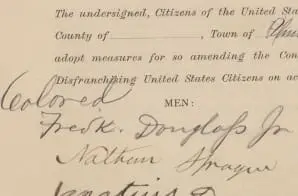 The undersigned, Citizens of the United Sta
County of , Town of
adopt measures for so amending the Con
Disfranchising United States Citizens on ac
Colored MEN:
Fredk. Douglass Jr
Nathan Sprague